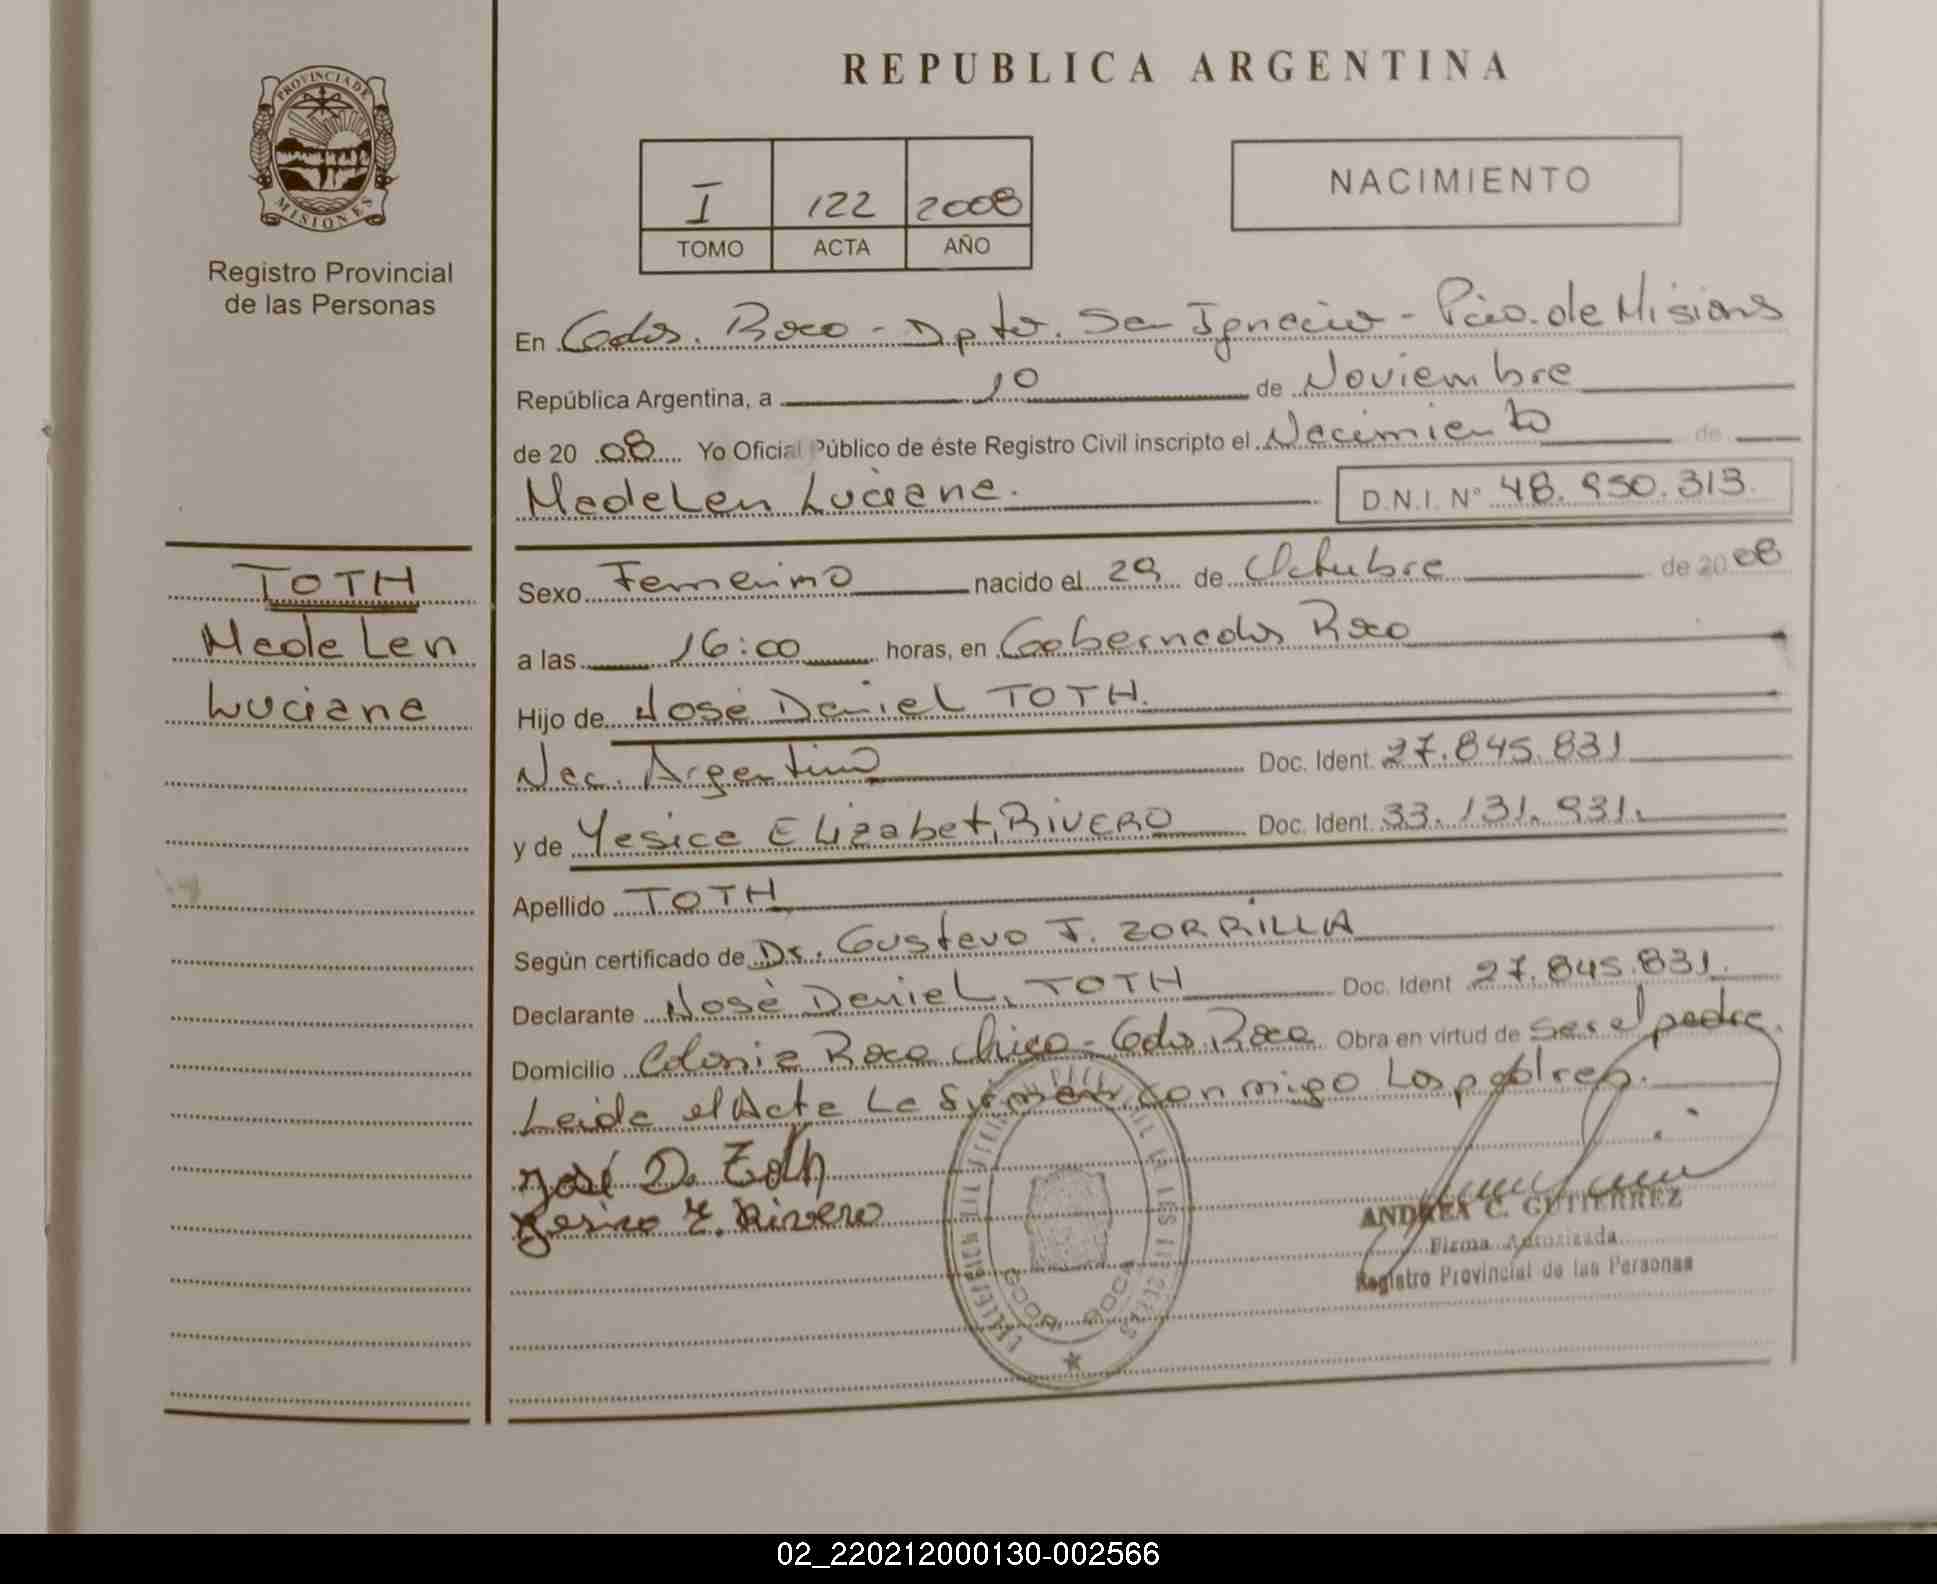 REPUBLICA ARGENTINA
PROVINCIA DE
MISIONES
Registro Provincial
de las Personas
I 122 2008
TOMO ACTA AÑO
NACIMIENTO
En Gdor. Roca - Dpto. San Ignacio - Pcia. de Misiones
República Argentina, a 10 de Noviembre
de 2008 Yo Oficial Público de éste Registro Civil inscripto el Nacimiento de
Madelen Luciana. D.N.I. Nº 48.950.313
TOTH
Madelen
Luciana
Sexo Femenino nacido el 29 de Octubre de 2008
a las 16:00 horas, en Gobernador Roca
Hijo de José Daniel TOTH.
Nac. Argentino Doc. Ident. 27.845.831
y de Yesica Elizabet, RIVERO Doc. Ident. 33.131.931.
Apellido TOTH
Según certificado de Dr. Gustavo J. ZORRILLA
Declarante José Daniel, TOTH Doc. Ident 27.845.831.
Domicilio Colonia Roca Chica - Gdor. Roca Obra en virtud de ser el padre.
Leida el Acta La firman conmigo Los padres.
José D. Toth
Yesica E. Rivero
GDOR. ROCA
ANDREA C. GUTIERREZ
Firma Autorizada
Registro Provincial de las Personas
02_220212000130-002566